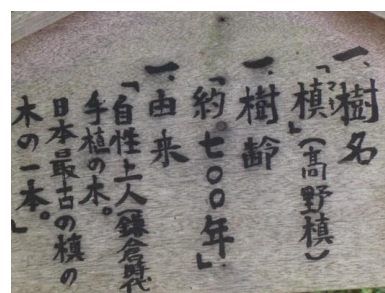 一、樹名
「槙」(高野槙)
マキ
一、樹齢
「約七〇〇年」
一、由来
「自性上人(鎌倉時代
手植の木。
日本最古の槙の
木の一本。」